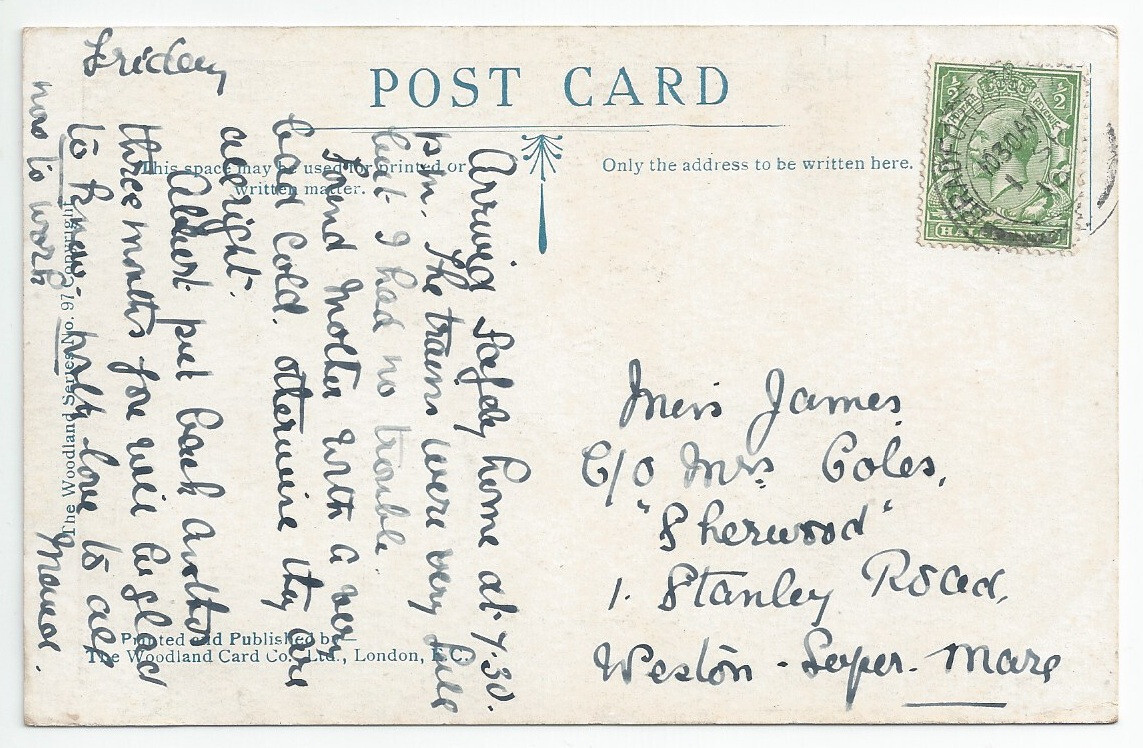 POST CARD
This space may be used for printed or
written matter.
Only the address to be written here.
HAL
BRADFORD
10 30 AM
1
18
Friday
Arrived safely home at 7.30.
p.m. The trains were very late
but I had no trouble.
Found Mother with a very
bad cold. otherwise they are
all right.
Albert put back another
three months you will be glad
to know. with love to all
Miss James
C/o Mrs Coles,
"Sherwood"
1. Stanley Road,
Weston-Super-Mare
The Woodland Series No. 97 Copyright
Printed and Published by—
The Woodland Card Co., Ltd., London, E.C.